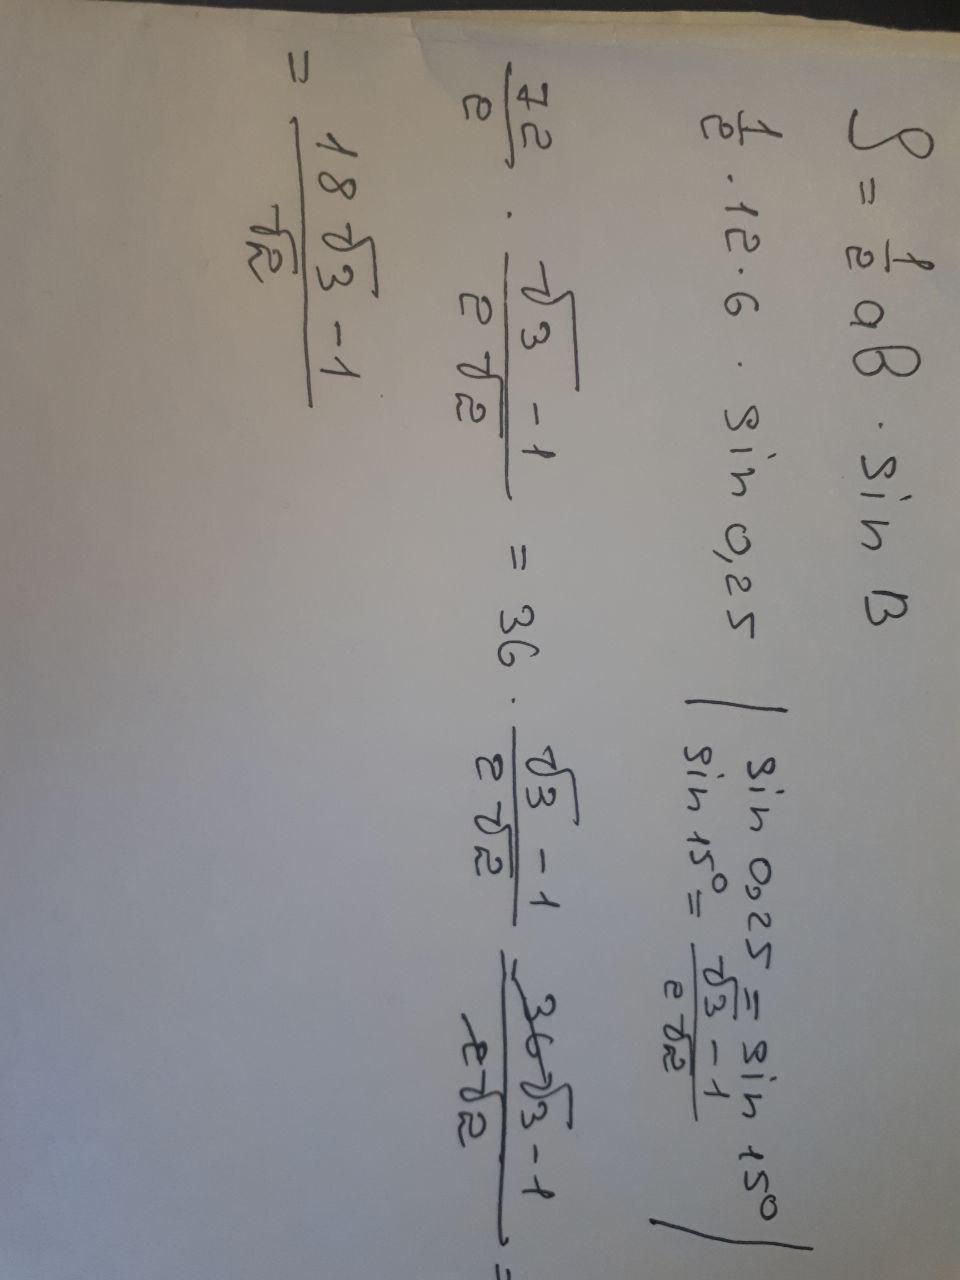 S = 1/2 aB · sin B
1/2 · 12 · 6 · sin 0,25 | sin 0,25 = sin 15°
sin 15° = (√3 - 1)/(2√2) |
72/2 · (√3 - 1)/(2√2) = 36 · (√3 - 1)/(2√2) = (36√3 - 1)/(2√2) =
= (18√3 - 1)/√2